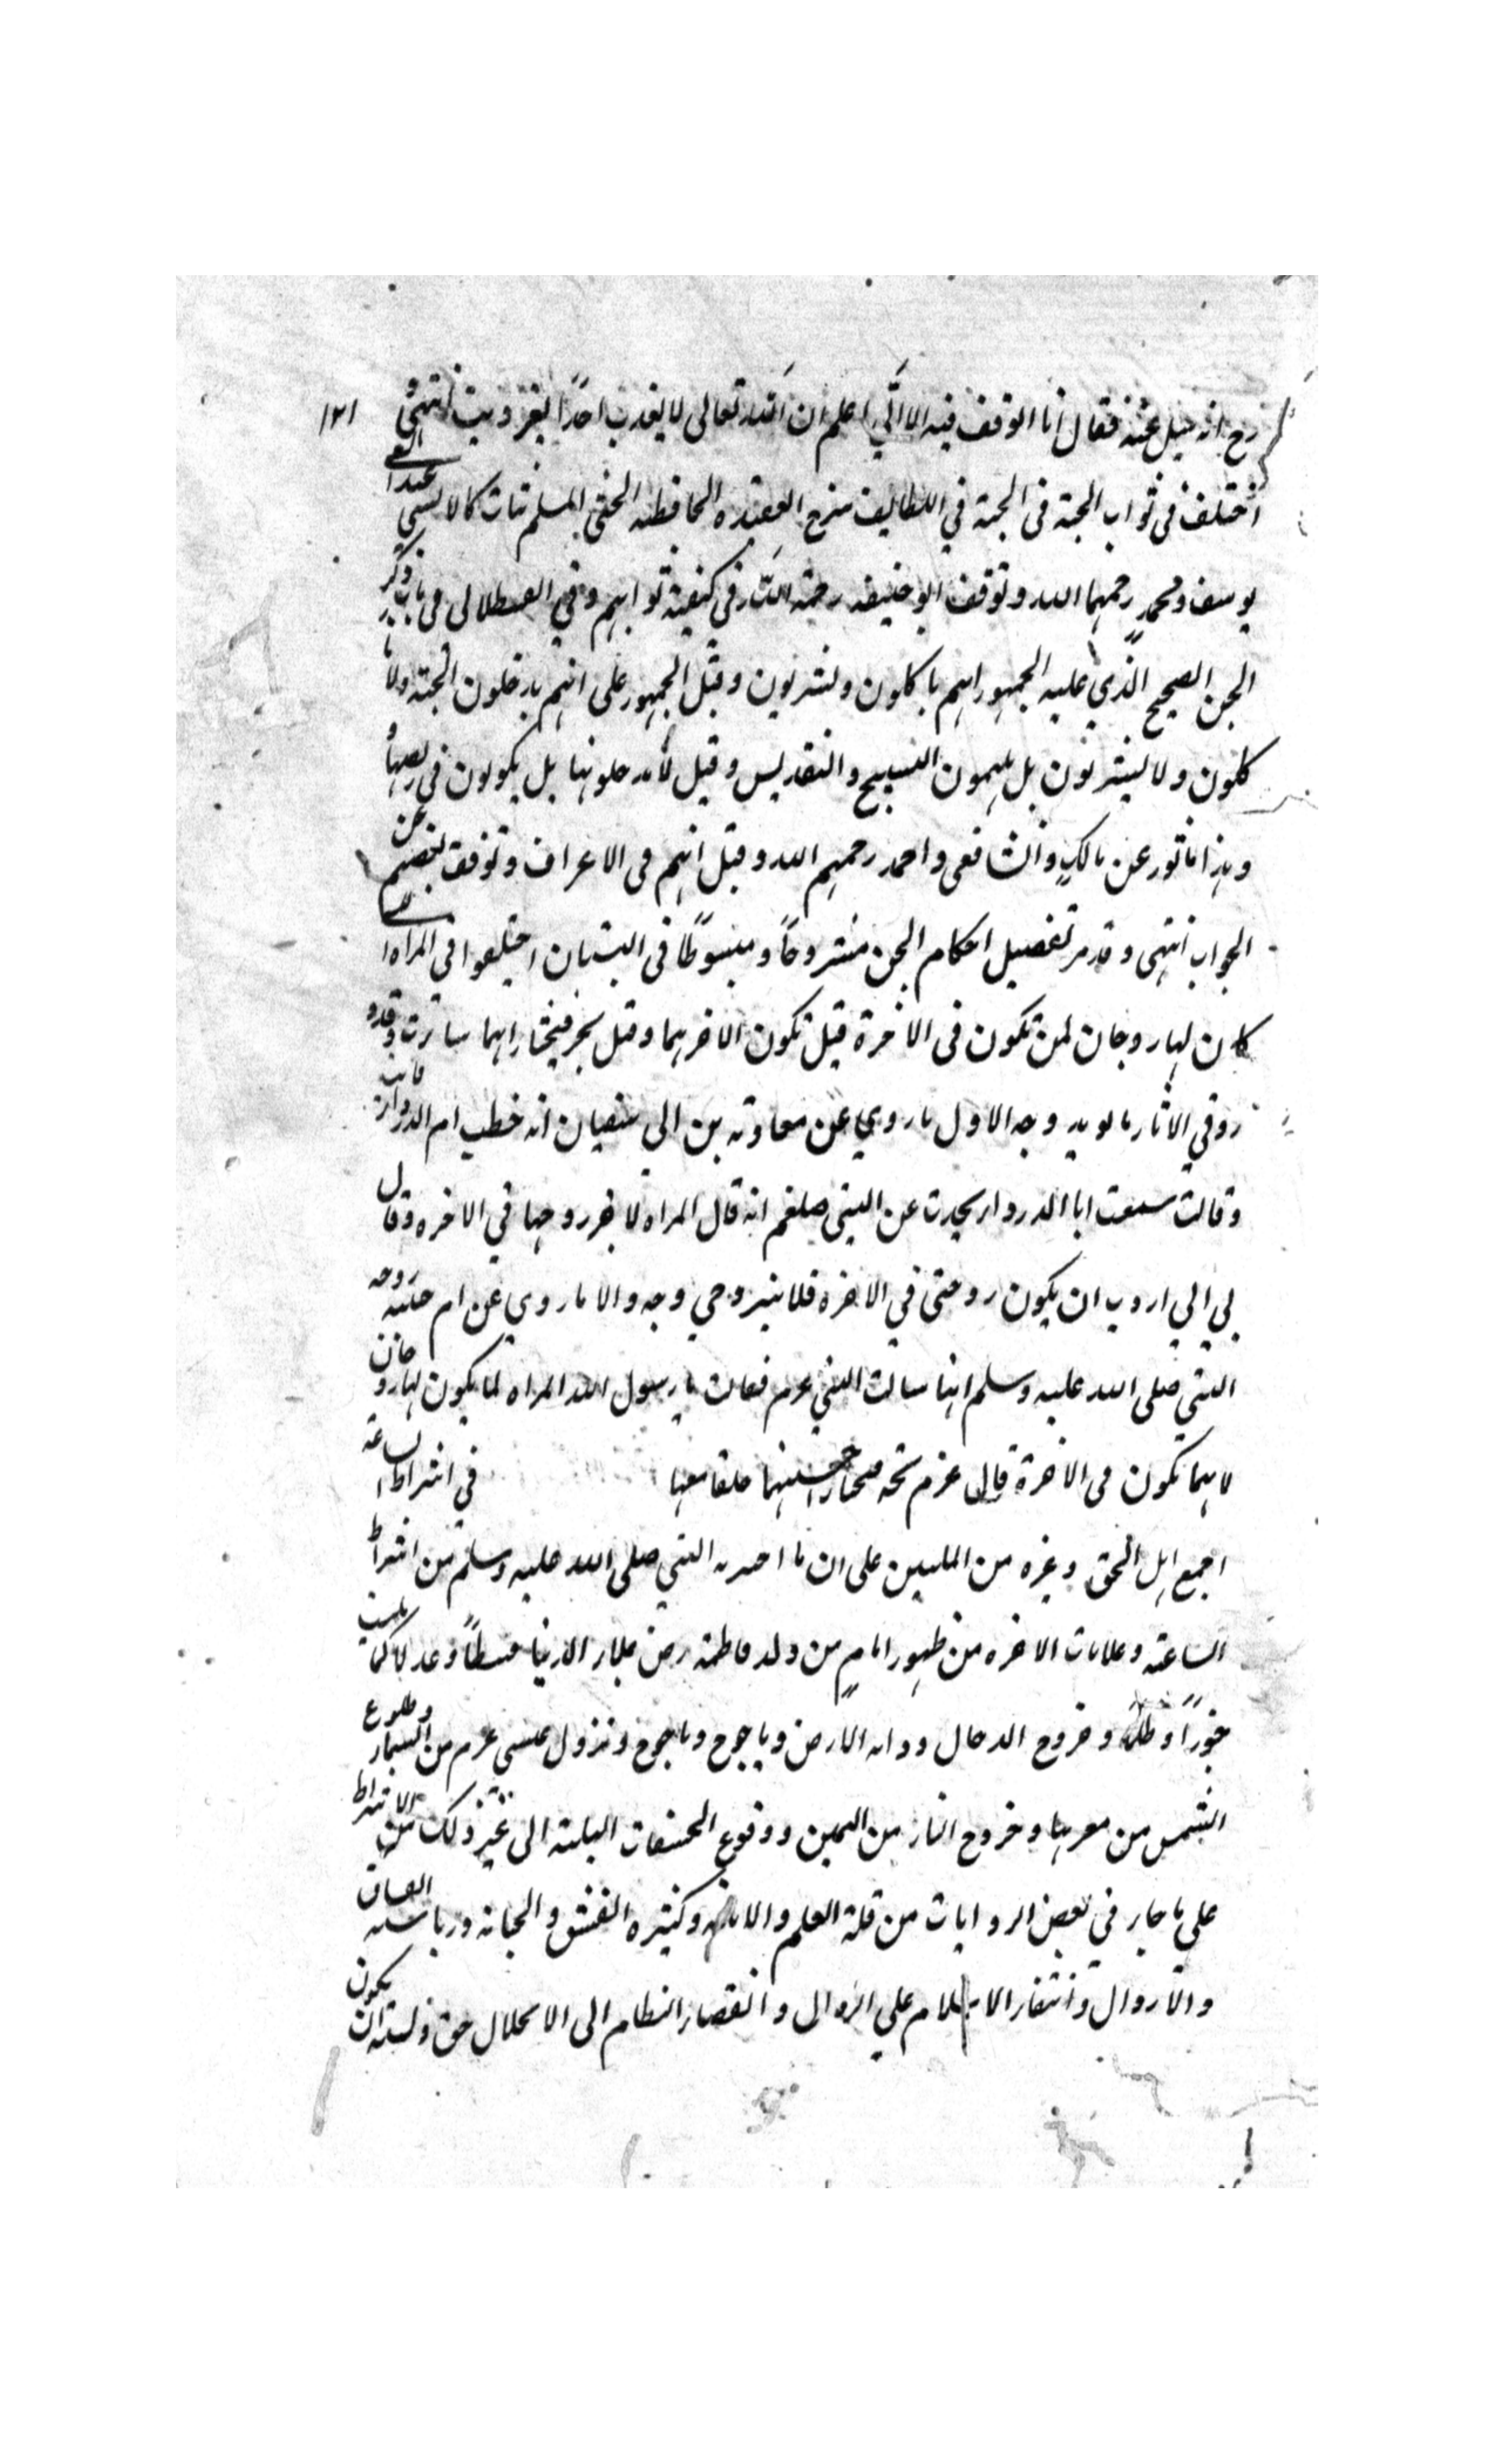 ١٢١
رح انه سئل عنه فقال انا اتوقف فيه الا انى اعلم ان الله تعالى لا يعذب احدًا بغير ذنب انتهى
اختلف فى ثواب الجنة فى الجنة في اللطايف شرح العقيدة الحافظية الجنى المسلم يثاب كالانسى عند ابى
يوسف ومحمد رحمهما الله وتوقف ابو حنيفه رحمة الله في كيفية ثوابهم وفي القسطلانى فى باب ذكر
الجن الصحيح الذي عليه الجمهور انهم ياكلون ويشربون وقيل الجمهور على انهم يدخلون الجنة ولا يا
كلون ولا يشربون بل يلهمون التسبيح والتقديس وقيل لا يدخلونها بل يكونون فى ربضها
وهذا ماثور عن مالك والشافعى واحمد رحمهم الله وقيل انهم فى الاعراف وتوقف بعضهم عن
الجواب انتهى وقد مر تفصيل احكام الجن مشروحًا ومبسوطًا فى البستان اختلفوا فى المراة ا
كان لها زوجان لمن تكون فى الاخرة قيل تكون لاخرهما وقيل تخير فتختار ايهما شاءت وقد و
رد في الاثار ما يويد وجه الاول ما روي عن معاوية بن ابي سفيان انه خطب ام الدرداء فابت
وقالت سمعت ابا الدرداء يحدث عن النبى صلعم انه قال المراه لاخر زوجها في الاخره وقال
لي ان اردت ان تكون زوجتى في الاخرة فلا تتزوجي وجه والا ما روي عن ام حبيبه زوجه
النبي صلى الله عليه وسلم انها سالت النبي عم فقالت يا رسول الله المراه لما يكون لها زوجان
لايهما تكون فى الاخرة قال عم تخير فتختار احسنهما خلقا معها في اشراط الساعة
اجمع اهل الحق وغيره من المليين على ان ما اخبر به النبي صلى الله عليه وسلم من اشراط
الساعة وعلامات الاخره من ظهور امام من ولد فاطمة رض يملاء الدنيا قسطًا وعدلا كما ملئت
جورًا وظلما وخروج الدجال ودابة الارض وياجوج وماجوج ونزول عيسى عم من السماء وطلوع
الشمس من مغربها وخروج النار من اليمن ووقوع الخسفات الثلثة الى غير ذلك من الاشراط
علي ما جاء في بعض الروايات من قلة العلم والامانة وكثرة الفسق والخيانة ورياسة الفساق
والاراذل وانتقار الاسلام علي الزوال وانقصار النظام الى الانحلال حق ويشبه ان يكون